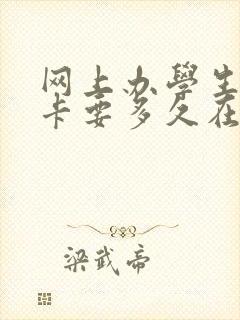 网上办學生
卡要多久在
梁武帝